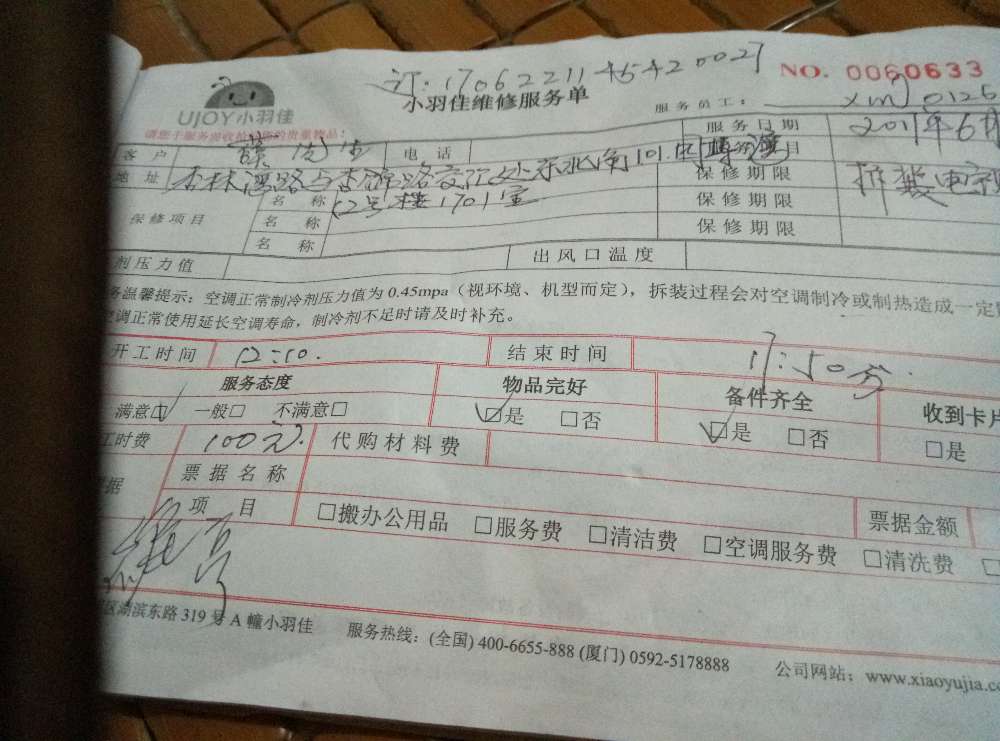 订:1706221145420027
NO. 0060633
小羽佳维修服务单
服务员工: xm 0125
UJOY小羽佳
请您于服务前收拾好您的贵重物品:
客户 先生 电话 服务日期 2017年6月
地址 杏林湾路与杏锦路交汇处东北侧101. 保修期限 拆装
保修项目 名称 12号楼1701室 保修期限
名称 保修期限
名称
剂压力值 出风口温度
务温馨提示:空调正常制冷剂压力值为0.45mpa(视环境、机型而定),拆装过程会对空调制冷或制热造成一定
调正常使用延长空调寿命,制冷剂不足时请及时补充。
开工时间 12:10. 结束时间 17:50分
服务态度 物品完好 备件齐全 收到卡片
满意☑ 一般□ 不满意□ ☑是 □否 ☑是 □否 □是
工时费 100元 代购材料费
据 票据名称
项目 □搬办公用品 □服务费 □清洁费 □空调服务费 □清洗费 票据金额
区湖滨东路 319 号 A 幢小羽佳 服务热线:(全国) 400-6655-888 (厦门) 0592-5178888 公司网站:www.xiaoyujia.co